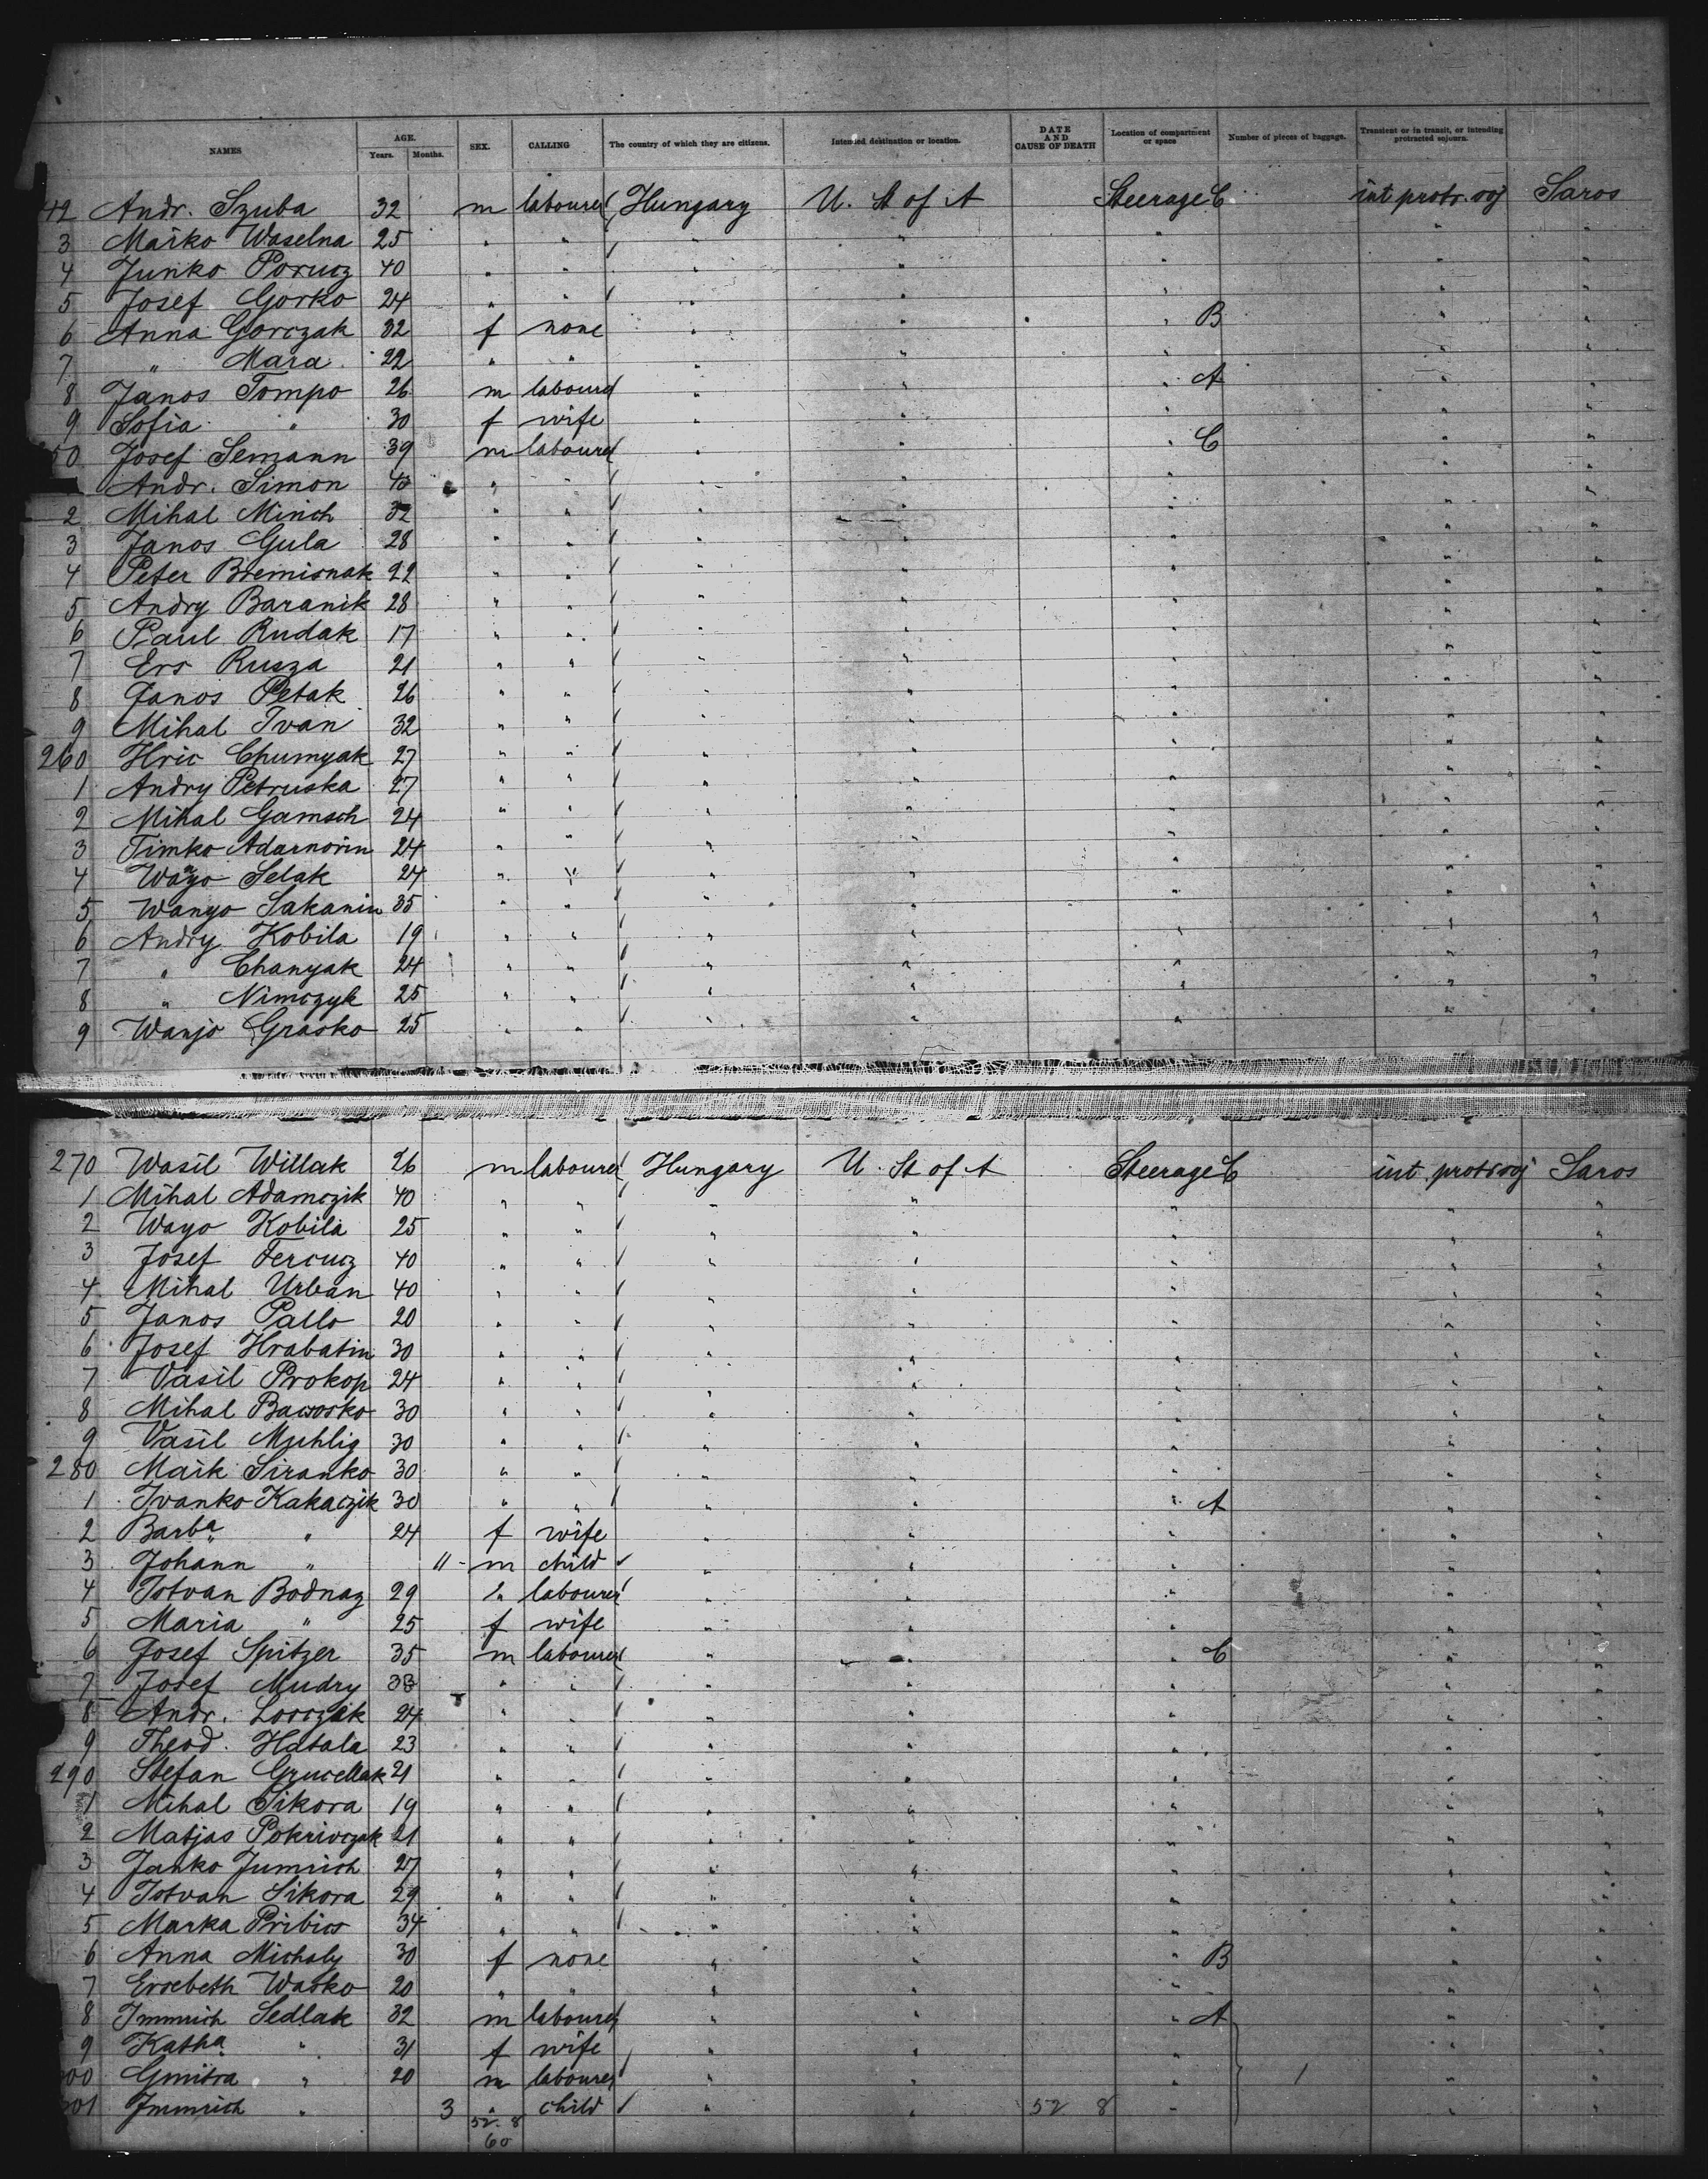 NAMES AGE. Years. Months. SEX. CALLING The country of which they are citizens. Intended destination or location. DATE AND CAUSE OF DEATH Location of compartment or space Number of pieces of baggage. Transient or in transit, or intending protracted sojourn.
42 Andr. Szuba 32 m labourer Hungary U. St of A Steerage C int protr. soj Saros
3 Maiko Waselna 25 " " " " " " "
4 Junko Porucz 40 " " " " " " "
5 Josef Gorko 24 " " " " " " "
6 Anna Gorczak 32 f none " " " B " "
7 " Mara 22 " " " " " " "
8 Janos Tompo 26 m labourer " " " A " "
9 Sofia " 30 f wife " " " " "
50 Josef Semann 39 m labourer " " " C " "
Andr. Simon 40 " " " " " " "
2 Mihal Minch 32 " " " " " " "
3 Janos Gula 28 " " " " " " "
4 Peter 22 " " " " " " "
5 Andry Baranik 28 " " " " " " "
6 Paul Rudak 17 " " " " " " "
7 Ers Rusza 21 " " " " " " "
8 Janos Petak 26 " " " " " " "
9 Mihal Ivan 32 " " " " " " "
260 Hric Chumyak 27 " " " " " " "
1 Andry Petruska 27 " " " " " " "
2 Mihal Gamsch 24 " " " " " " "
3 Timko 24 " " " " " " "
4 Wayo Selak 24 " " " " " " "
5 Wanyo Sakanin 35 " " " " " " "
6 Andry Kobila 19 " " " " " " "
7 " Chanyak 24 " " " " " " "
8 " Nimczyk 25 " " " " " " "
9 Wanjo Grasko 25 " " " " " " "
270 Wasil Willak 26 m labourer Hungary U. St of A Steerage C int. protr soj Saros
1 Mihal Adamczik 40 " " " " " " "
2 Wayo Kobila 25 " " " " " " "
3 Josef Fercucz 40 " " " " " " "
4 Mihal Urban 40 " " " " " " "
5 Janos Pallo 20 " " " " " " "
6 Josef Hrabatin 30 " " " " " " "
7 Vasil Prokop 24 " " " " " " "
8 Mihal 30 " " " " " " "
9 Vasil Muhlig 30 " " " " " " "
280 Maik Siranko 30 " " " " " " "
1 Ivanko Kakaczik 30 " " " " " A " "
2 Barba " 24 f wife " " " " "
3 Johann " 11 m child " " " " "
4 Istvan Bodnaz 29 " labourer " " " " "
5 Maria " 25 f wife " " " " "
6 Josef Spitzer 35 m labourer " " " C " "
7 Josef Mudry 33 " " " " " " "
8 Andr. Lorczak 24 " " " " " " "
9 Theod. Hatala 23 " " " " " " "
290 Stefan Grucellak 21 " " " " " " "
1 Mihal Sikora 19 " " " " " " "
2 Matjas Pokrivczak 21 " " " " " " "
3 Janko Jumrich 27 " " " " " " "
4 Istvan Sikora 29 " " " " " " "
5 Marka Pribics 34 " " " " " " "
6 Anna Michaly 30 f none " " " B " "
7 Ersebeth Wasko 20 " " " " " " "
8 Immrich Sedlak 32 m labourer " " " A " "
9 Katha " 31 f wife " " " " "
00 Gmitra " 20 m labourer " " " 1 " "
301 Immrich " 3 " child " " 52 8 " " "
52. 8
60